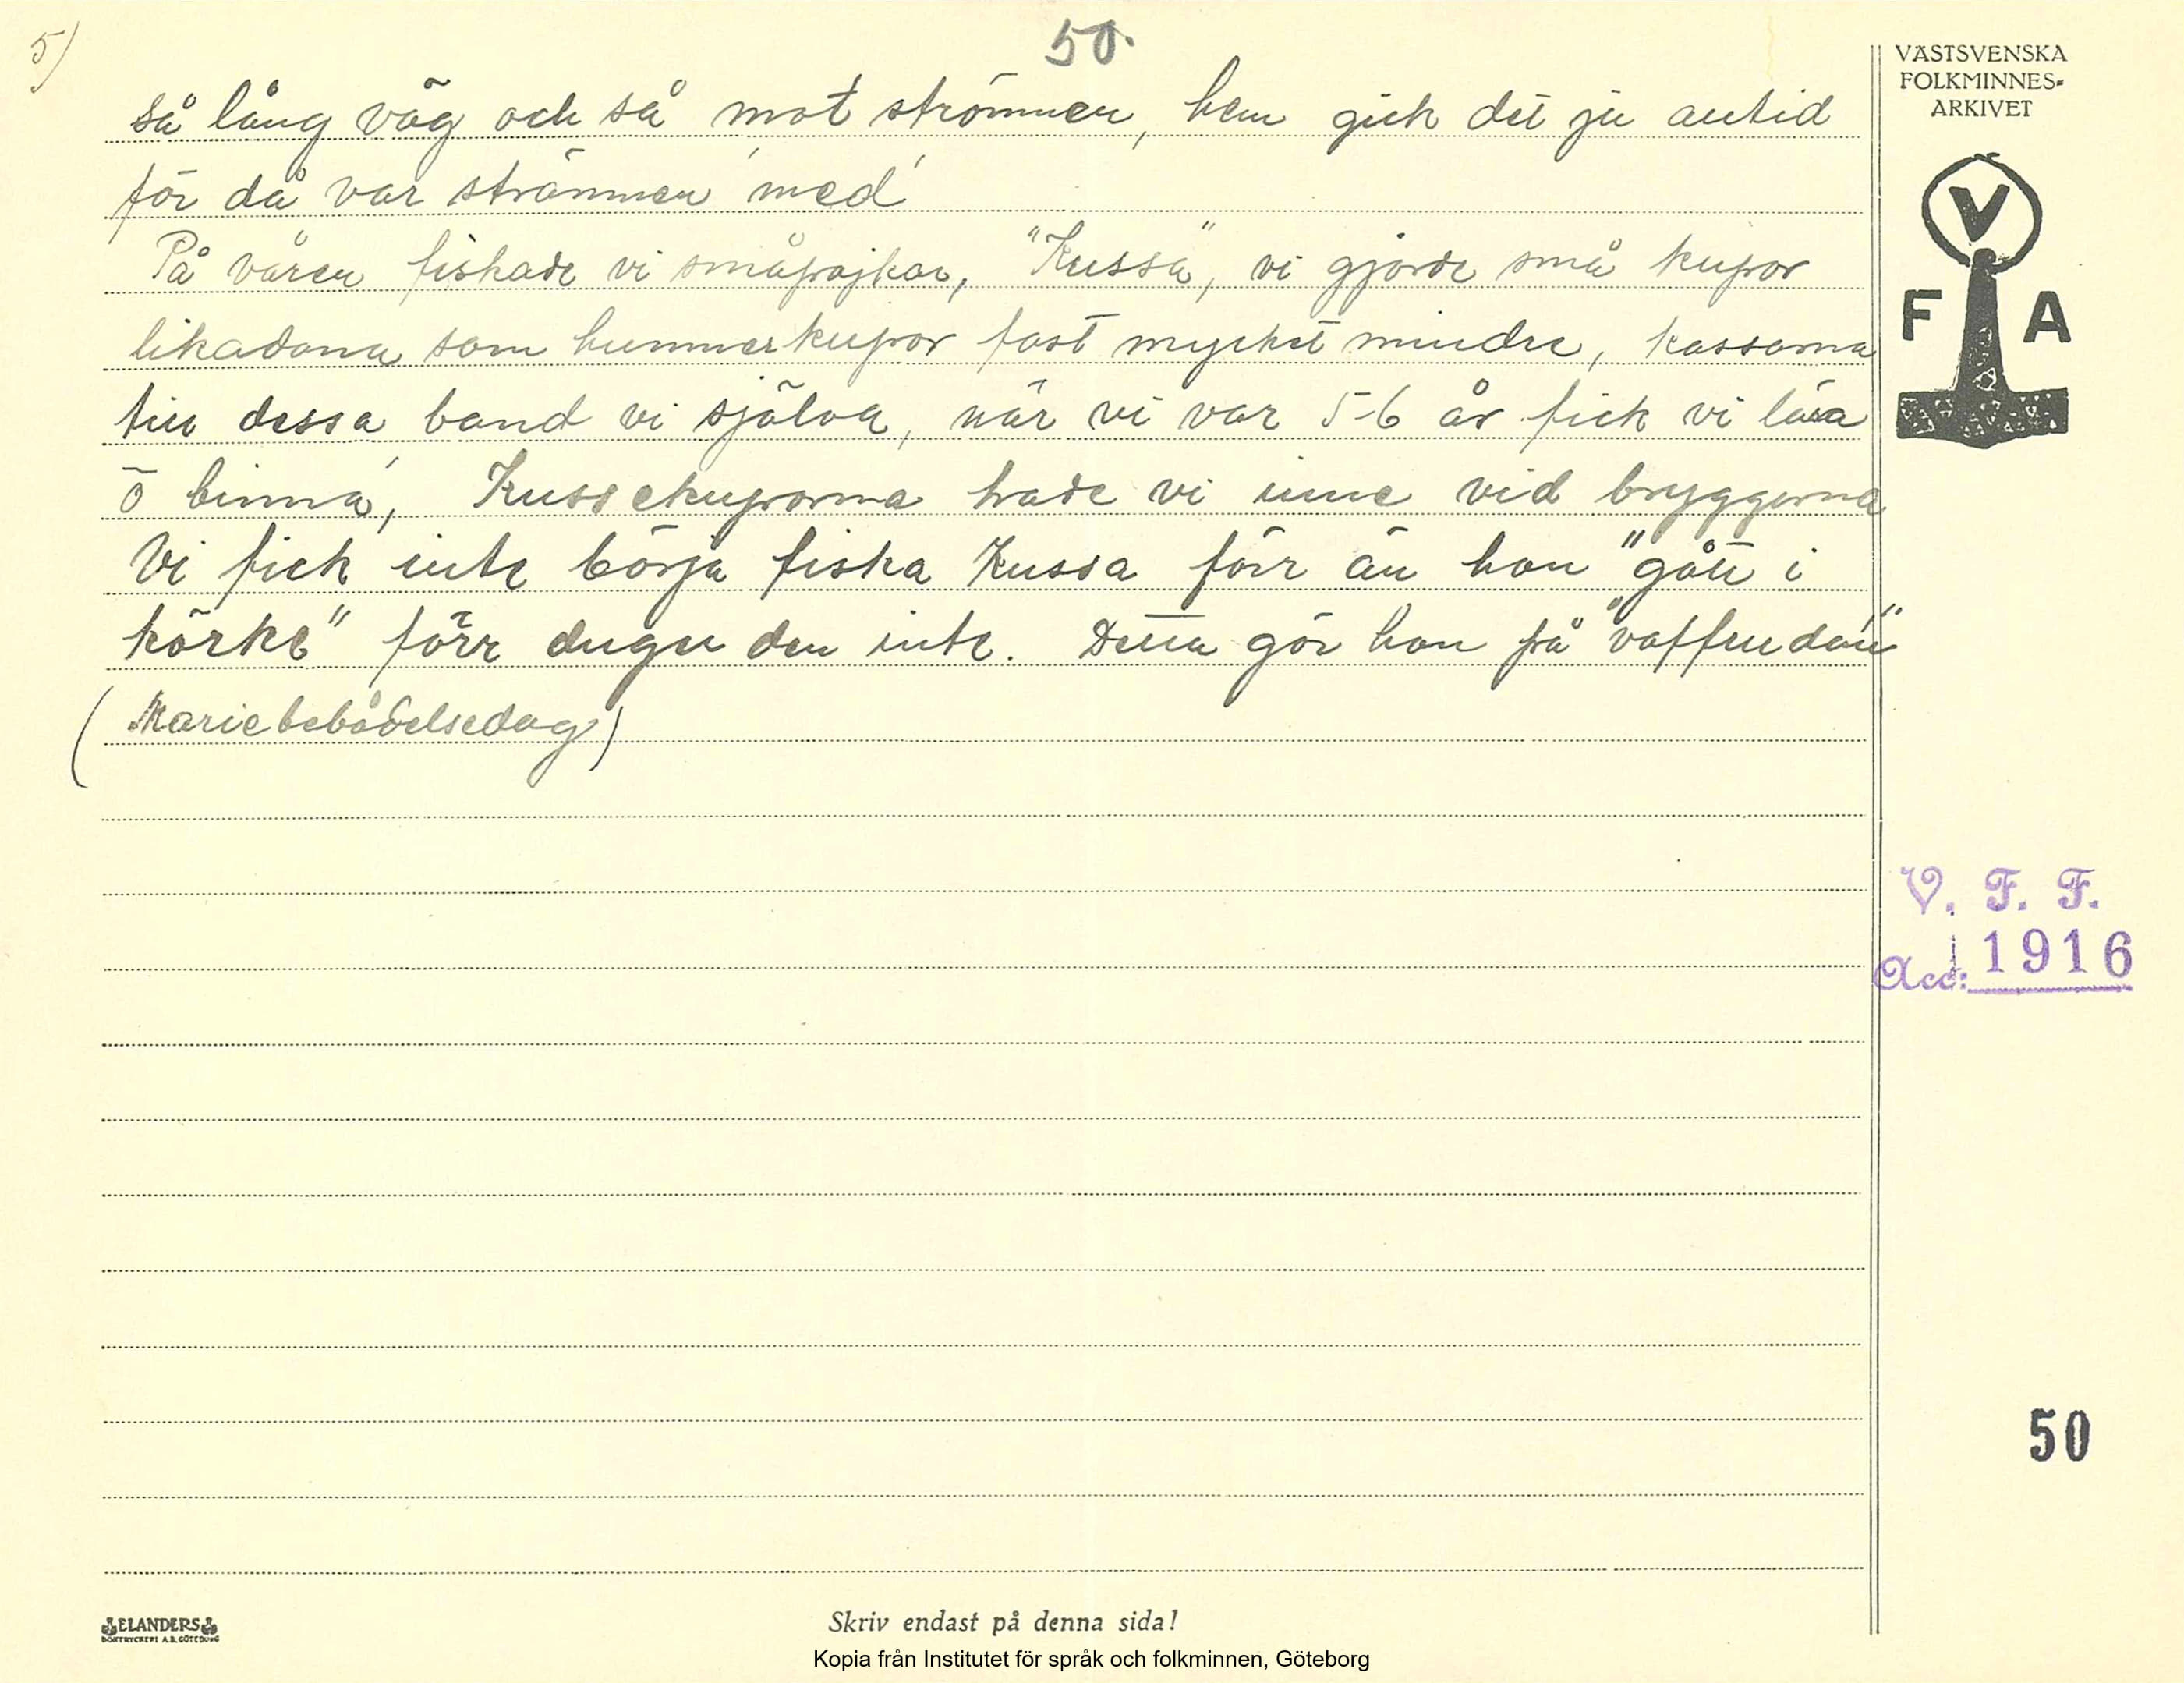 5)
50.
så lång väg och så mot strömmen, hem gick det ju autid
för då var strömmen 'med'
På våren fiskade vi småpojkar, "Kussa", vi gjorde små kupor
likadana som hummerkupor fast mycket mindre, kassarna
till dessa band vi själva, när vi var 5-6 år fick vi lära
ö binna, Kussekuporna hade vi inne vid bryggorna
Vi fick inte börja fiska Kussa förr än hon "gått i
körke" förr duger den inte. Detta gör hon på "vaffrudan"
(Mariebebådelsedag)
VÄSTSVENSKA
FOLKMINNES-
ARKIVET
V
F A
V. F. F.
Acc: 1916
50
ELANDERS
BOKTRYCKERI A.B. GÖTEBORG
Skriv endast på denna sida!
Kopia från Institutet för språk och folkminnen, Göteborg